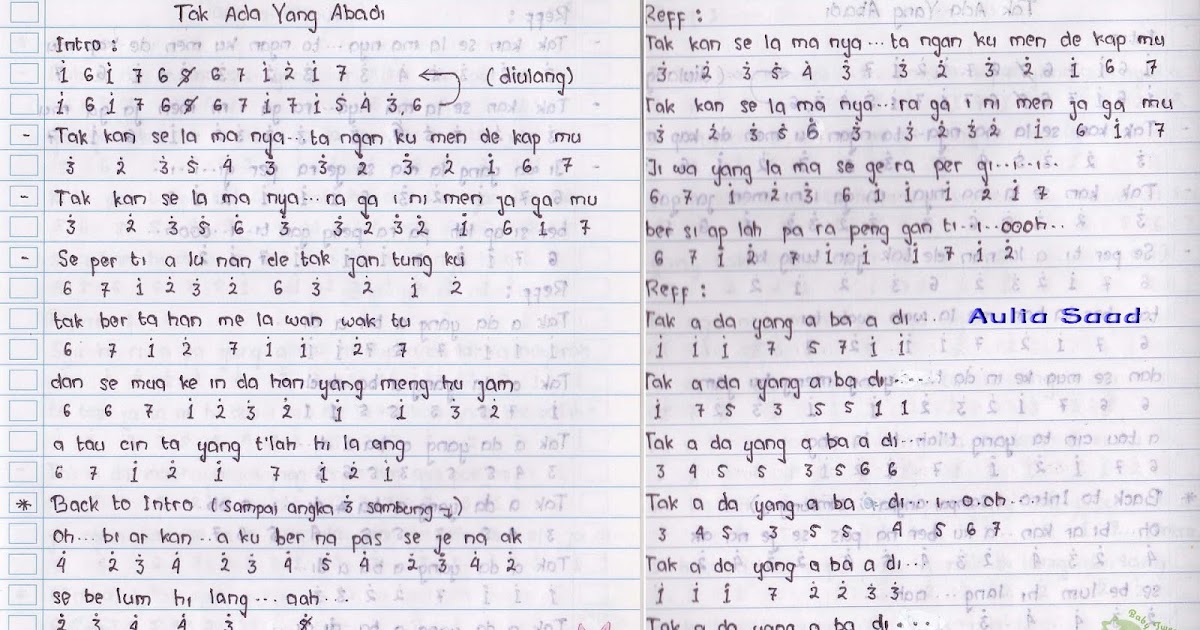 Tak Ada Yang Abadi
Intro :
1̇ 6 1̇ 7 6 8̸ 6 7 1̇ 2̇ 1̇ 7 (diulang)
1̇ 6 1̇ 7 6 8̸ 6 7 1̇ 7 1̇ 5̇ 4̇ 3̇ 6
- Tak kan se la ma nya... ta ngan ku men de kap mu
3̇ 2̇ 3̇ 5̇ 4̇ 3̇ 3̇ 2̇ 3̇ 2̇ 1̇ 6 7
- Tak kan se la ma nya... ra ga i ni men ja ga mu
3̇ 2̇ 3̇ 5̇ 6̇ 3̇ 3̇ 2̇ 3̇ 2̇ 1̇ 6 1̇ 7
- Se per ti a lu nan de tak jan tung ku
6 7 1̇ 2̇ 3̇ 2̇ 6 3̇ 2̇ 1̇ 2̇
tak ber ta han me la wan wak tu
6 7 1̇ 2̇ 7 1̇ 1̇ 2̇ 7
dan se mua ke in da han yang meng hu jam
6 6 7 1̇ 2̇ 3̇ 2̇ 1̇ 1̇ 3̇ 2̇
a tau cin ta yang t'lah hi la ang
6 7 1̇ 2̇ 1̇ 7 1̇ 2̇ 1̇
* Back to Intro (sampai angka 3̇ sambung)
Oh... bi ar kan ...a ku ber na pas se je na ak
4̇ 2̇ 3̇ 4̇ 2̇ 3̇ 4̇ 5̇ 4̇ 2̇ 3̇ 4̇ 2̇
se be lum hi lang .... aah..
2̇ 3̇ 4̇ 4̇ 3̇
Reff :
Tak kan se la ma nya... ta ngan ku men de kap mu
3̇ 2̇ 3̇ 5̇ 4̇ 3̇ 3̇ 2̇ 3̇ 2̇ 1̇ 6 7
Tak kan se la ma nya... ra ga i ni men ja ga mu
3̇ 2̇ 3̇ 5̇ 6̇ 3̇ 3̇ 2̇ 3̇ 2̇ 1̇ 6 1̇ 7
Ji wa yang la ma se ge ra per gi...i...i..
6 7 1̇ 2̇ 3̇ 6 1̇ 1̇ 1̇ 2̇ 1̇ 7
ber si ap lah pa ra peng gan ti...i...oooh...
6 7 1̇ 2̇ 7 1̇ 1̇ 1̇ 7 1̇ 2̇
Reff :
Tak a da yang a ba a di...
1̇ 1̇ 1̇ 7 5 7 1̇ 1̇
Aulia Saad
Tak a da yang a ba di......
1̇ 7 5 3 5 5 1 1
Tak a da yang a ba a di...
3 4 5 5 3 5 6 6
Tak a da yang a ba a di... i...o.oh...
3 4 5 3 5 5 4 5 6 7
Tak a da yang a ba a di...
1̇ 1̇ 1̇ 7 2̇ 2̇ 3̇ 3̇
Tak a da yang a ba di.....